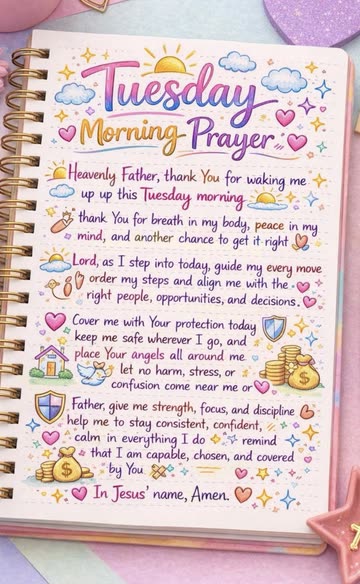 Tuesday
Morning Prayer
Heavenly Father, thank You for waking me
up up this Tuesday morning
thank You for breath in my body, peace in my
mind, and another chance to get it right
Lord, as I step into today, guide my every move
order my steps and align me with the
right people, opportunities, and decisions.
Cover me with Your protection today
keep me safe wherever I go, and
place Your angels all around me
let no harm, stress, or
confusion come near me or
Father, give me strength, focus, and discipline
help me to stay consistent, confident,
calm in everything I do remind
that I am capable, chosen, and covered
by You
In Jesus' name, Amen.